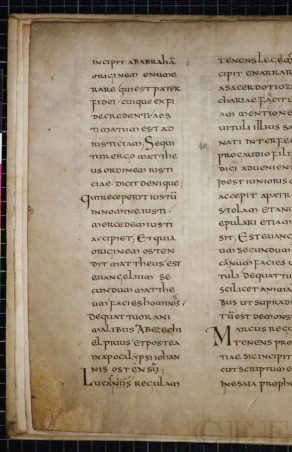 incipit ab abrahā
originem enume
rare qui est pater
fidei · cuique ex fi
de credenti aes
timatum est ad
iustitiam, Sequi
tur ergo matthe
us ordinem iusti
ciae · dicit denique
qui receperit iustū
in nomine iusti ·
mercedem iusti
accipiet, Et quia
originem osten
dit mattheus est
evangelium se
cundum matthe
um facies hominis,
dequattuor ani
malibus Ab ezechi
el prius et postea
in apocalypsi iohan
nis ostensū;
Lucanus regulam
tenens legem
cipit enarrar
a sacerdotio za
chariae facite
am mentione
uituli illius sa
nati interfec
pro gaudio fili
dici aduenien
id est iunioris
accepit a patr
stolam et anu
epulari etiam
sit, Est euang
um secundum
canum facies u
tuli · dequattu
scilicet animal
bus ut supradi
tū est demons
Marcus regu
tenens pro
tiae sic incipit
ut scriptum e
in esaia prophe